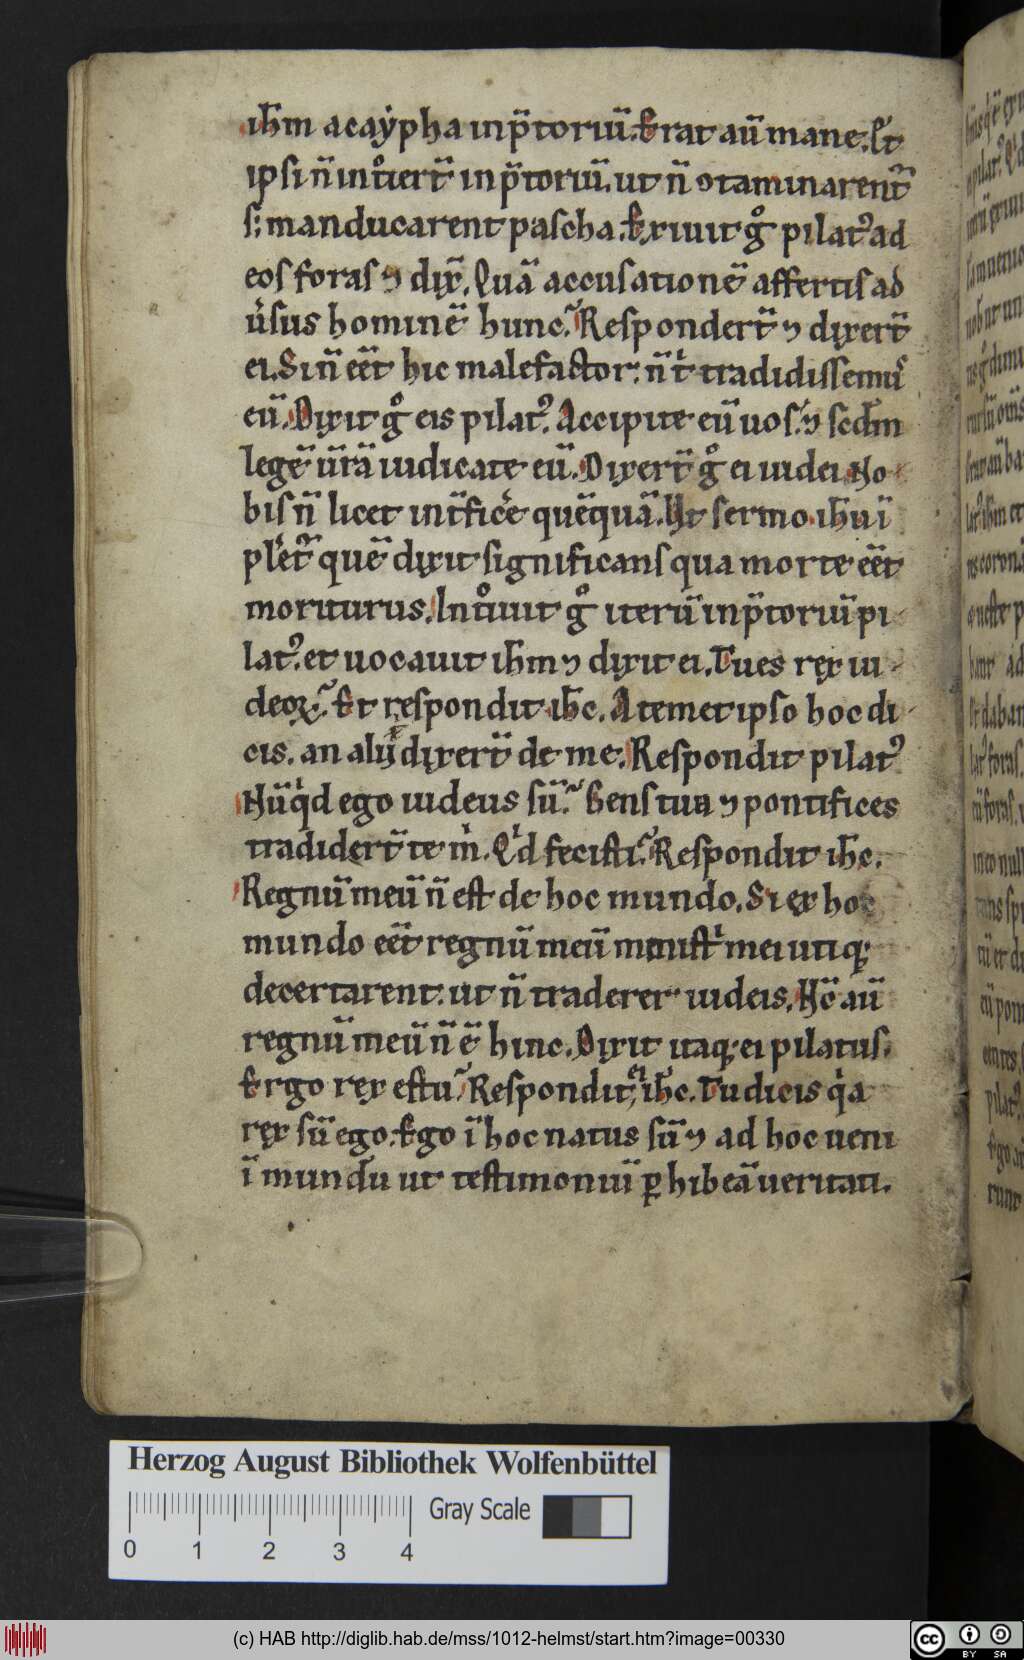 ih̅m a caẏpha in p̅toriu̅. Erat au̅ mane. Et
ipsi n̅ int͛oiert̅ in p̅toriu̅. ut n̅ ꝯtaminarent̅
s; manducarent pascha. Exiuit gͦ pilatꝰ ad
eos foras ⁊ dix̅. Qua̅ accusatione̅ affertis ad
ũsus homine̅ hunc. Respondert̅ ⁊ dixert̅
ei. Si n̅ ee̅t hic malefactor: n̅ tͥ tradidissemꝰ
eu̅. Dixit gͦ eis pilatꝰ. Accipite eu̅ uos. ⁊ scd̅m
lege̅ ur̅a̅ iudicate eu̅. Dixert̅ gͦ ei iudei. No
bis n̅ licet int̅fice̅ que̅qua̅. Ut sermo ih̅u i̅
plet̅ que̅ dixit significans qua morte ee̅t
moriturus. Intͦiuit gͦ iteru̅ in p̅toriu̅ pi
latꝰ. et uocauit ih̅m ⁊ dixit ei. Tu es rex iu
deoꝝ. Et respondit ih̅c. A temet ipso hoc di
cis. an alij dixert̅ de me. Respondit pilatꝰ
Nu̅qͥd ego iudeus su̅. Gens tua ⁊ pontifices
tradidert̅ te mͥ. Qͥd fecisti. Respondit ih̅c.
Regnu̅ meu̅ n̅ est de hoc mundo. Si ex hoc
mundo ee̅t regnu̅ meu̅ ministͥ mei utiq;
decertarent. ut n̅ traderer iudeis. Nc̅ au̅
regnu̅ meu̅ n̅ e̅ hinc. Dixit itaq; ei pilatus.
Ergo rex es tu. Respondit ih̅c. Tu dicis qͥa
rex su̅ ego. Ego i̅ hoc natus su̅ ⁊ ad hoc ueni
i̅ mundu̅ ut testimoniu̅ ꝑhibea̅ ueritati.
Herzog August Bibliothek Wolfenbüttel
Gray Scale
0 1 2 3 4
(c) HAB http://diglib.hab.de/mss/1012-helmst/start.htm?image=00330
cc BY SA